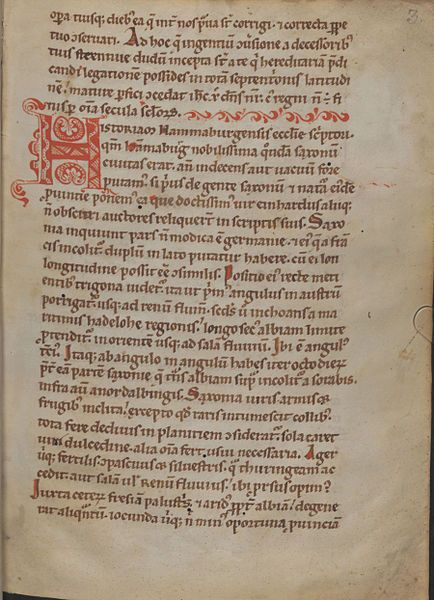 op̄a tuisq; dieb; ea q̄ inr̄ nos p̄ua st̄ corrigi ⁊ correcta ꝑpe
tuo ɔseruari. Ad hoc q̄ ingentiū ɔuersione a decessorib;
tuis strennue dudū incepta st̄ a te q̄ hereditariā p̄di
candi legationem possides in totā septentrionis latitudi
nē mature ꝑfici ɔcedat ih̄c xp̄c dn̄s nr̄ c̄ regni n̄ ē fi
nis ꝑ om̄a secula sclorꝝ
Historiam Hammaburgensis eccl̄ie sc̄ptori
qm̄ hammabug nobilissima quōda saxonū
ciuitas erat. n̄ indecens aut uacuū fore
putam; si p̄us de gente saxonū ⁊ natā ei;de
ꝓuincie ponem; ea que doctissim; uir einhardus aliiq;
n̄ obscuri auctores reliquerr̄ in scriptis suis. Saxo
nia inquiunt pars n̄ modica ē germanie. ⁊ ei; q̄ a fran
cis incolit; duplū in lato putatur habere. cū ei lon
longitudine possit ee ɔsimilis. Positio ei; recte meti
entib; trigona uidet; ita ut p̄m; angulus in austrū
porrigat; usq; ad renū flum̄. Scds ū inchoans a ma
ritimis hadelohe regionis. longo sec; albiam limite
ꝓtendit; in oriente usq; ad salā fluuiū. Ibi ē angul;
tc̄i. Itaq; ab angulo in angulū habes iter octo dierꝝ
pt̄ ea partē saxonie q̄ tn̄s albiam sup̄i; incolit; a sorabis.
infra aū a nordalbingis. Saxonia uiris armis &
frugib; inclita. excepto qd̄ raris intumescit collib;
tota fere decliuis in planitiem ɔsideratur. sola caret
uini dulcedine. alia om̄a fert usui necessaria. Ager
ubq; fertilis. ɔpascuus & siluestris. q̄ thuringeam ac
cedit aut salam ul̄ Renū fluuius. ibi p̄rsus opim;
Iuxta ceterꝝ fresiā palustris. & arid; ꝓpt̄ albiā. degene
rat aliqntū. iocunda ubq; n̄ min; oportuna ꝓuinciam